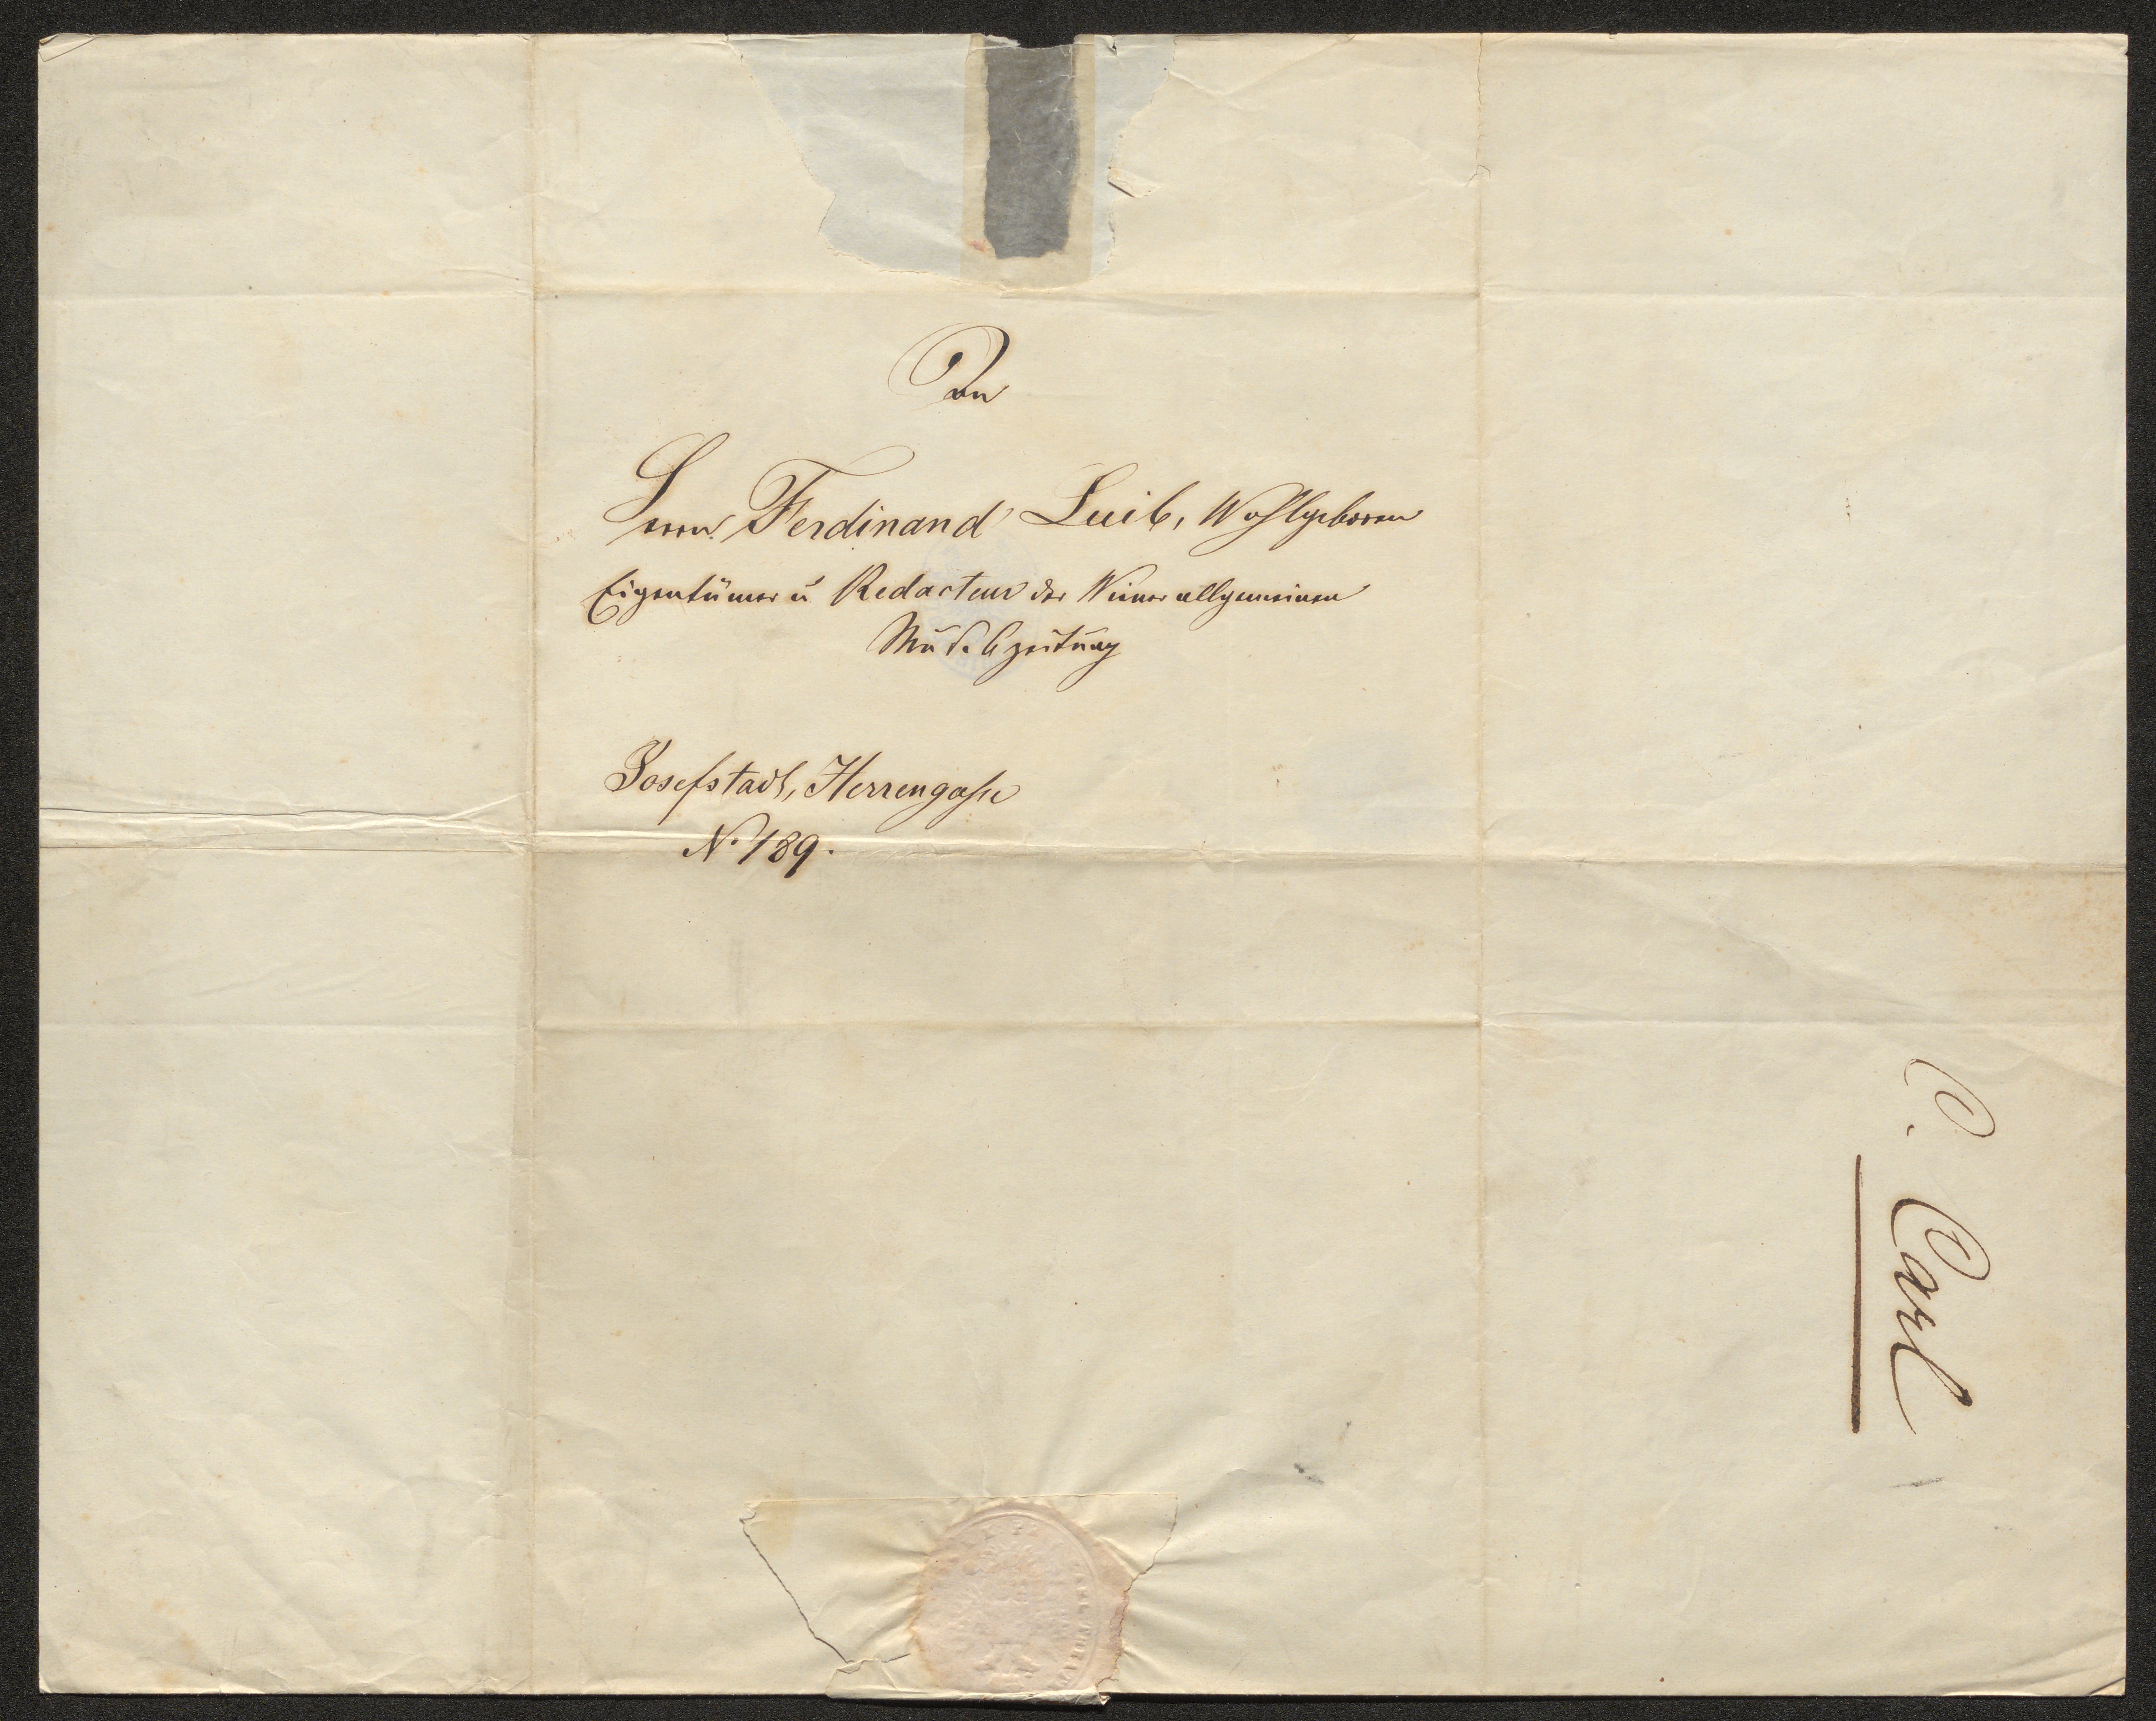 An
Herrn Ferdinand Luib, Wohlgeboren
Eigentümer u Redacteur der Wiener allgemeinen
Musikzeitung
Josefstadt, Herrengasse
N. 189.
C. Carl